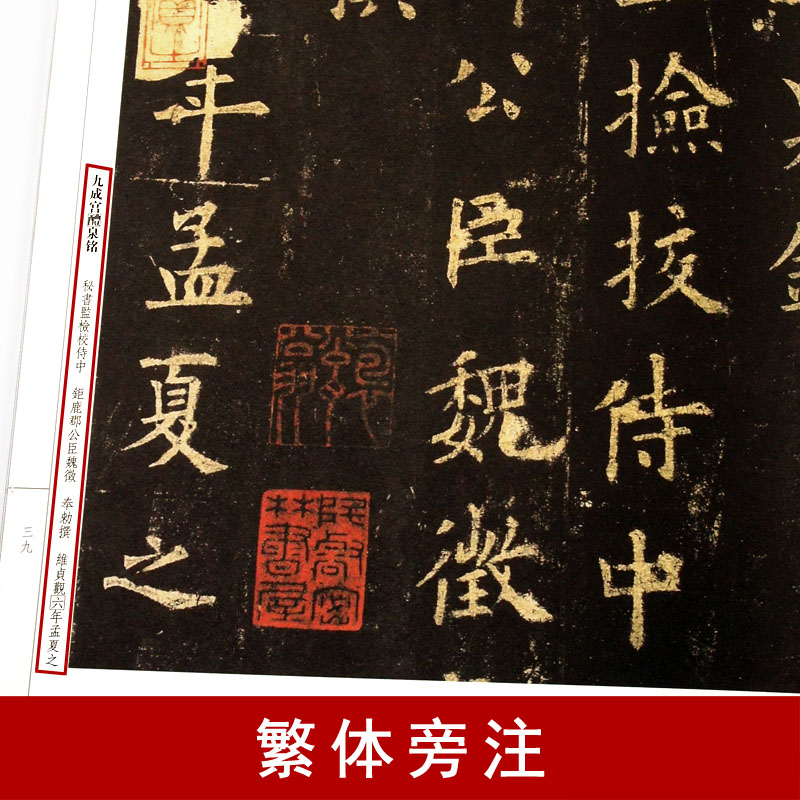 檢校侍中
公臣魏徵
年孟夏之
九成宫醴泉铭 秘書監檢校侍中 鉅鹿郡公臣魏徵 奉勅撰 維貞觀六年孟夏之
三九
繁体旁注